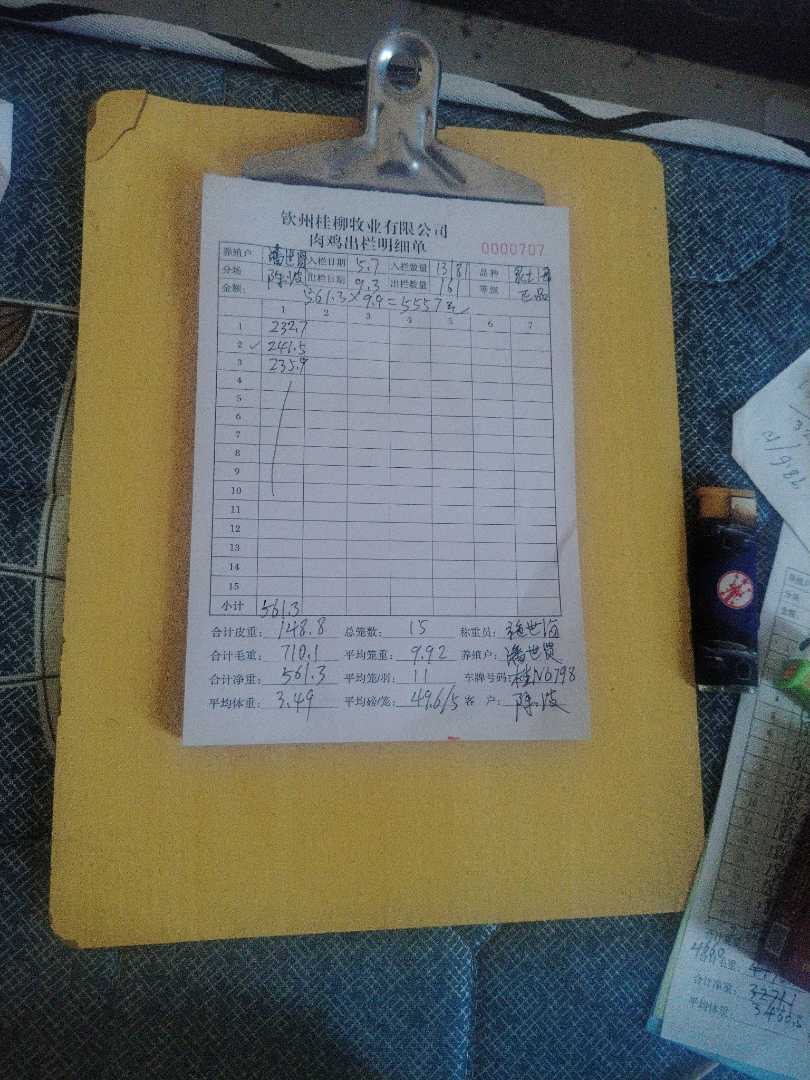 钦州桂柳牧业有限公司
肉鸡出栏明细单 0000707
养殖户 潘世贤 入栏日期 5.7 入栏数量 13181 品种
分场 陈波 出栏日期 9.3 出栏数量 161 等级 正品
金额: 561.3×9.9=5557元
1 2 3 4 5 6 7
1 232.7
2 ✓ 241.5
3 235.9
4
5
6
7
8
9
10
11
12
13
14
15
小计 561.3
合计皮重: 148.8 总笼数: 15 称重员:
合计毛重: 710.1 平均笼重: 9.92 养殖户: 潘世贤
合计净重: 561.3 平均笼/羽: 11 车牌号码: 桂N6798
平均体重: 3.49 平均磅/笼: 49.6/5 客 户: 陈波
21986
合计净重:
平均体重: